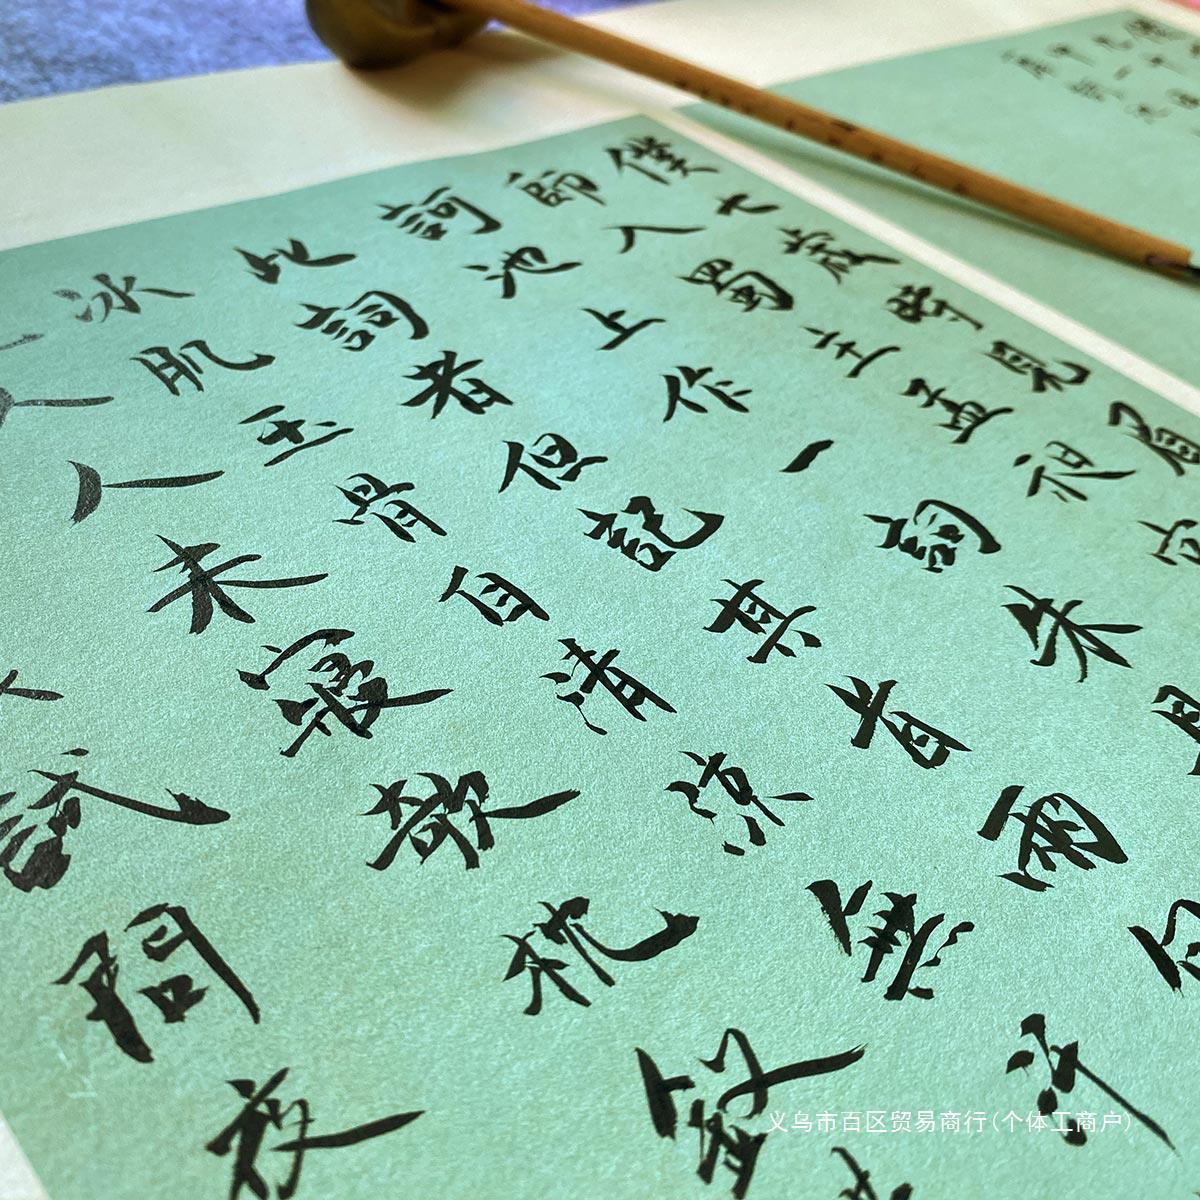 僕七歲時見眉
師入蜀主孟昶宮
訶池上作一詞朱具
此詞者但記其首兩句
冰肌玉骨自清涼無汗
人人未寢欹枕釵
試問夜
义乌市百区贸易商行(个体工商户)